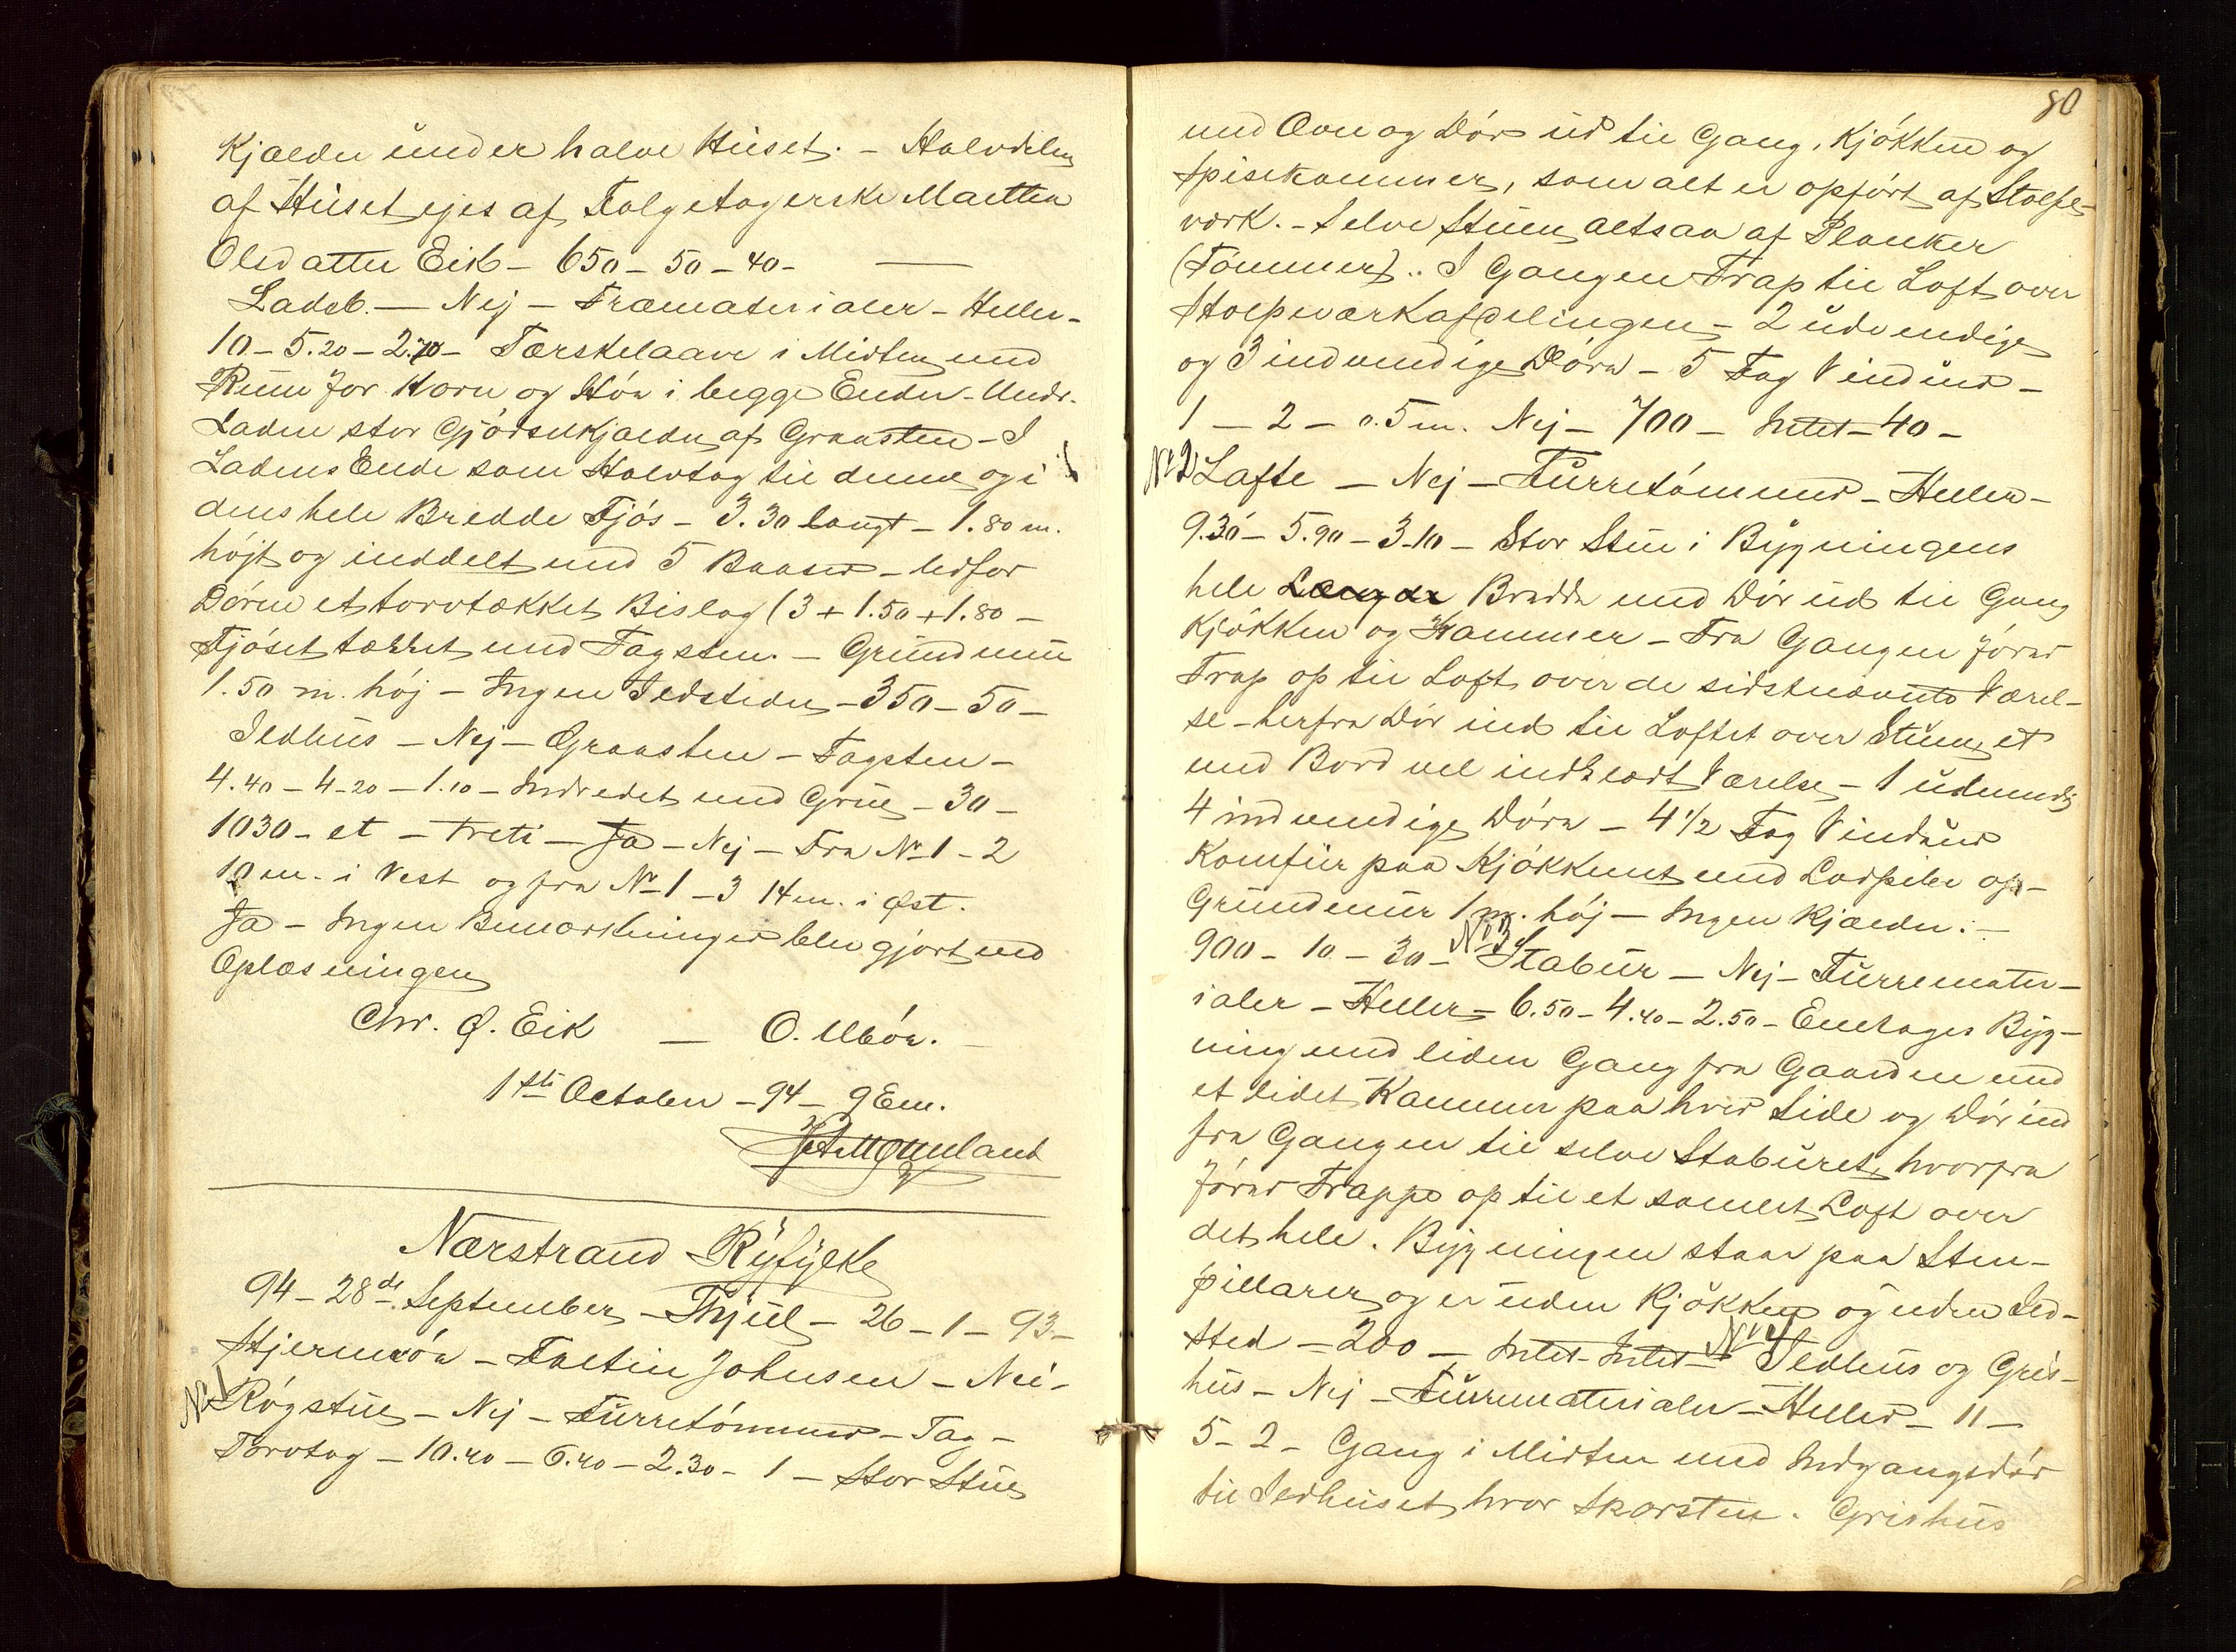 Kjælder under halve Huset. - Halvdelen
af Huset ejes af Folgetagerske Martha
Olsdatter Eik - 650 - 50 - 40 -
Ladeb. - Nej - Træmaterialer - Heller -
10 - 5.20 - 2.70 - Tærskelaave i Midten med
Rum for Korn og Höe i begge Ender - Under
Laden stor Gjödselkjælder af Graasten - I
Ladens Ende som Halvtag til denne og i
dens hele Bredde Fjös - 3.30 langt - 1.80 m.
højt og inddelt med 5 Baaser - Udfor
Dören et torvtækket Bislag (3 + 1.50 + 1.80 -
Fjöset tækket med Tagsten. - Grundmur
1.50 m. höj - Ingen Ildsteder - 350 - 50 -
Ildhus - Nej - Graasten - Tagsten -
4.40 - 4.20 - 1.10 - Indredet med Grue - 30 -
1030 - et - treti - Ja - Nej - Fra No 1 - 2
10 m. i Vest og fra No 1 - 3 14 m. i Øst.
Ja - Ingen Bemærkninger blev gjort ved
Oplæsningen
Chr. O. Eik - O. Uböe.
1ste October - 94 - 9 Em.
Nærstrand Ryfylke
94 - 28de September - Thjul - 26 - 1 - 93 -
Hjermeröe - Johnsen - Nei -
No 1 Rögstue - Nej - Furretömmer - Tag -
Torvtag - 10.40 - 6.40 - 2.30 - 1 - Stor Stue
80
med Ovn og Dör ud til Gang, Kjökken og
Spisekammer, som alt er opfört af Stolpe-
værk. - Selve Stuen altsaa af Planker
(Tömmer). I Gangen Trap til Loft over
Stolpeværkafdelingen - 2 udvendige
og 3 indvendige Döre - 5 Fag Vinduer -
1 - 2 - 0.5 m. Nej - 700 - Intet - 40 -
No 2 Lofte - Nej - Furretömmer - Heller -
9.30 - 5.90 - 3.10 - Stor Stue i Bygningens
hele Længde Bredde med Dör ud til Gang
Kjökken og Kammer - Fra Gangen förer
Trap op til Loft over de sidstnævnte Værel-
se - herfra Dör ind til Loftet over Stuen, et
med Bord vel indklædt Værelse - 1 udvendig
4 indvendige Döre - 4 1/2 Fag Vinduer
Komfur paa Kjökkenet med Lodpibe op -
Grundmur 1 m. höj - Ingen Kjælder. -
900 - 10 - 30 - No 3 Stabur - Nej - Furremater-
ialer - Heller - 6.50 - 4.40 - 2.50 - Enetages Byg-
ning med liden Gang fra Gaarden med
et lidet Kammer paa hver Side og Dör ind
fra Gangen til selve Staburet, hvorfra
förer Trappe op til et samlet Loft over
det hele. Bygningen staar paa Sten-
pillarer og er uden Kjökken og uden Ild-
sted - 200 - Intet - Intet - No 4 Ildhus og Gris-
hus - Nej - Furrematerialer - Heller - 11 -
5 - 2 - Gang i Midten med Indgangsdör
til Ildhuset, hvor Skorsten. Grishus